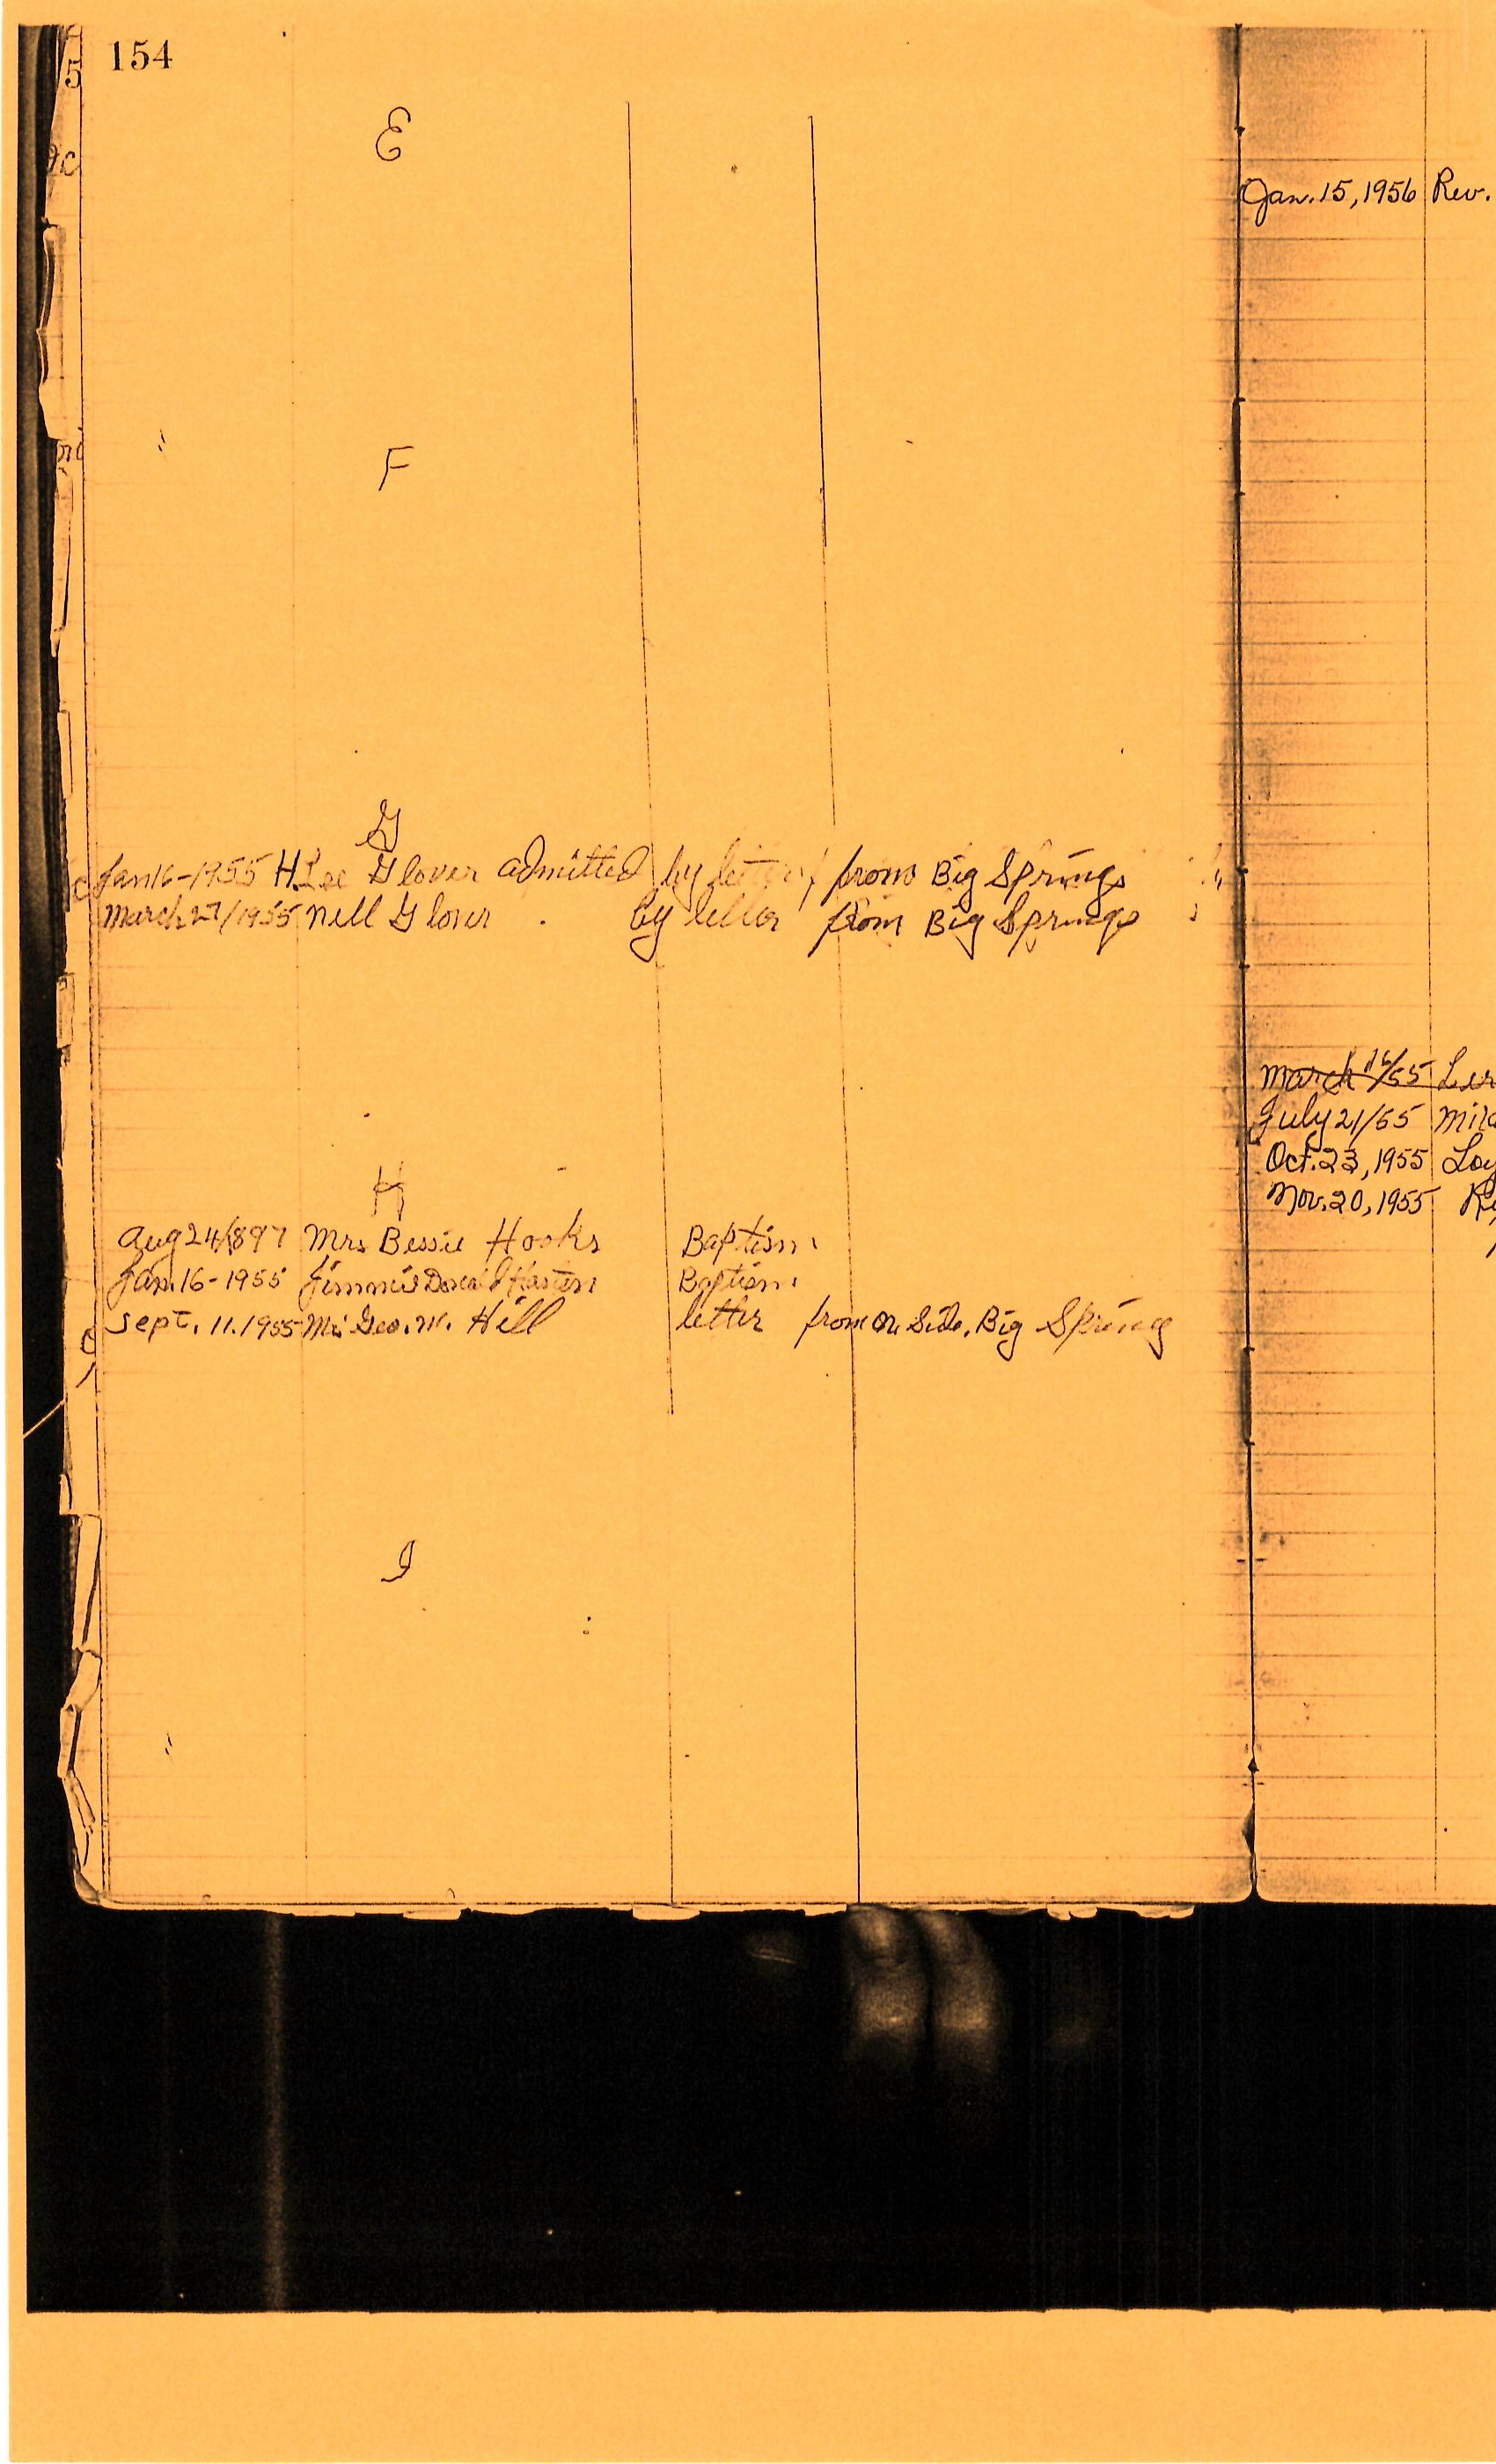 154
E
F
G
Jan 16-1955 H. Lee Glover admitted by letter from Big Springs
March 27/1955 Nell Glover by letter from Big Springs
H
Aug 24/1897 Mrs Bessie Hooks Baptism
Jan. 16-1955 Jimmie Donald Baptism
Sept. 11. 1955 Geo. W. Hill letter from Big Spring
I
Jan. 15, 1956 Rev.
March 16/55
July 21/55
Oct. 23, 1955
Nov. 20, 1955